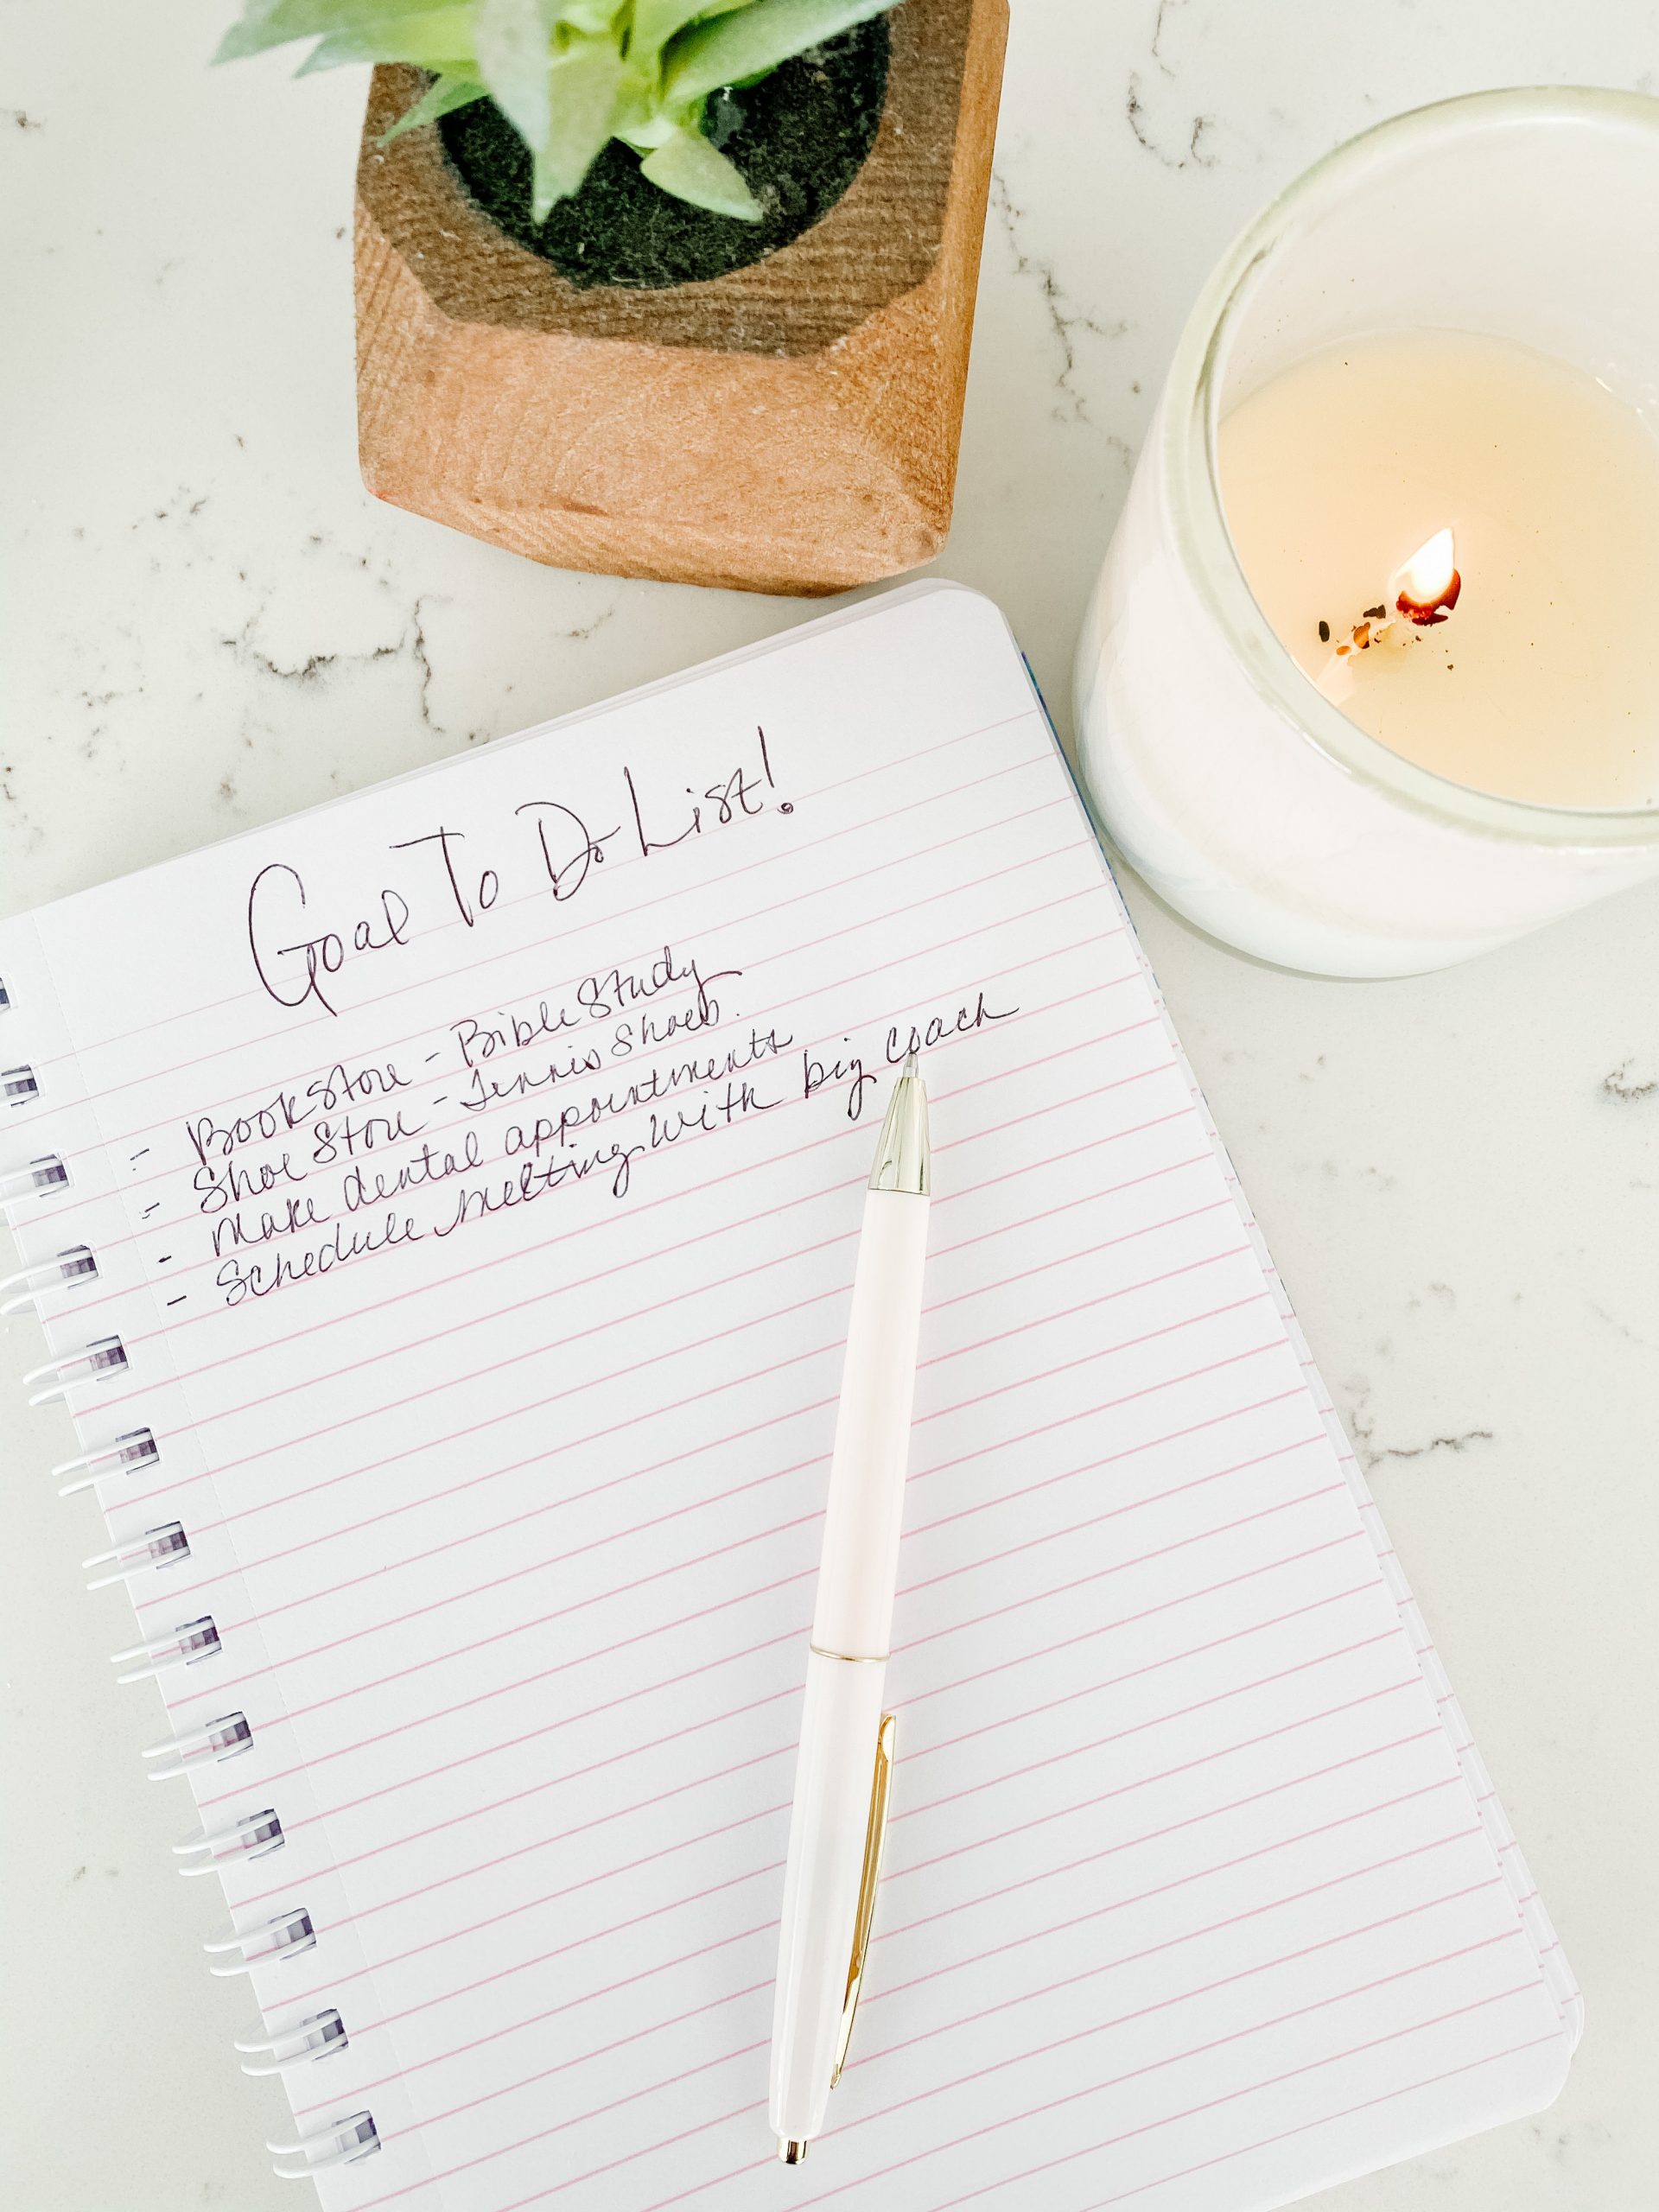 Goal To Do List!
- Bookstore - Bible Study
- Shoe Store - Tennis Shoes.
- Make dental appointments
- Schedule Meeting with big coach